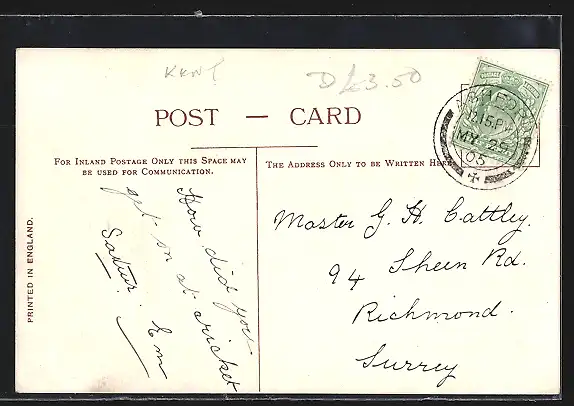 KENT
D £3.50
POST — CARD
FOR INLAND POSTAGE ONLY THIS SPACE MAY
BE USED FOR COMMUNICATION.
THE ADDRESS ONLY TO BE WRITTEN HERE
How did you
get on at cricket
Satur. Em
Master G. H. Cattley.
94 Sheen Rd.
Richmond.
Surrey
12.15 PM
MY 29
05
PRINTED IN ENGLAND.